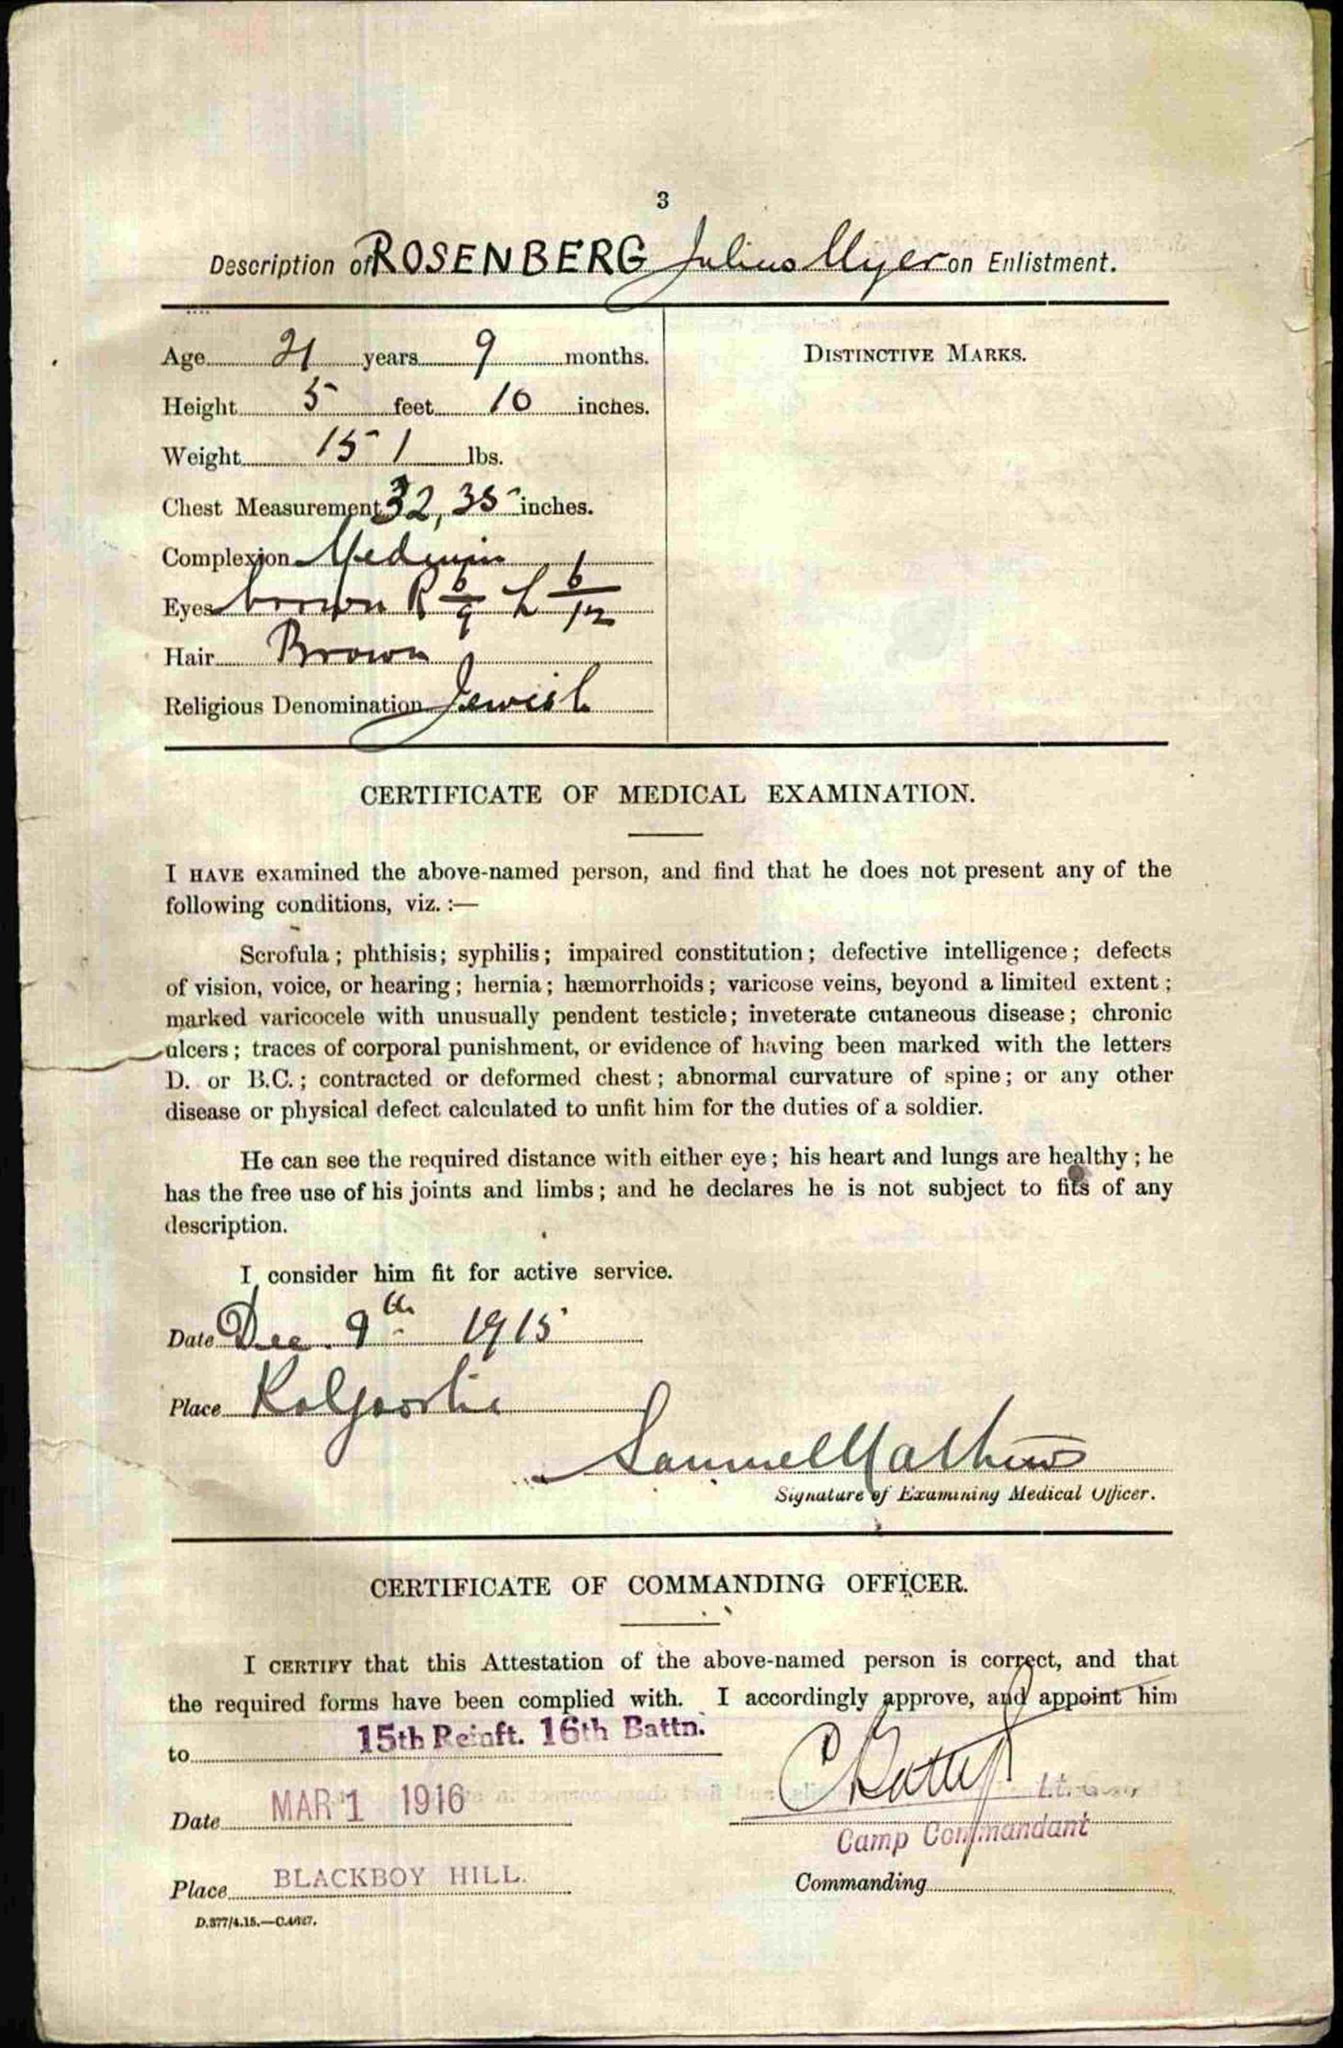 3
Description of ROSENBERG Julius Myer on Enlistment.
Age 21 years 9 months.
Height 5 feet 10 inches.
Weight 151 lbs.
Chest Measurement 32, 35 inches.
Complexion Medium
Eyes brown R 6/9 L 6/12
Hair Brown
Religious Denomination Jewish
DISTINCTIVE MARKS.
CERTIFICATE OF MEDICAL EXAMINATION.
I HAVE examined the above-named person, and find that he does not present any of the
following conditions, viz. :—
Scrofula ; phthisis ; syphilis ; impaired constitution ; defective intelligence ; defects
of vision, voice, or hearing ; hernia ; hæmorrhoids ; varicose veins, beyond a limited extent ;
marked varicocele with unusually pendent testicle ; inveterate cutaneous disease ; chronic
ulcers ; traces of corporal punishment, or evidence of having been marked with the letters
D. or B.C. ; contracted or deformed chest ; abnormal curvature of spine ; or any other
disease or physical defect calculated to unfit him for the duties of a soldier.
He can see the required distance with either eye ; his heart and lungs are healthy ; he
has the free use of his joints and limbs ; and he declares he is not subject to fits of any
description.
I consider him fit for active service.
Date Dec. 9th 1915
Place Kalgoorlie
Samuel Mathews
Signature of Examining Medical Officer.
CERTIFICATE OF COMMANDING OFFICER.
I CERTIFY that this Attestation of the above-named person is correct, and that
the required forms have been complied with. I accordingly approve, and appoint him
to 15th Reinft. 16th Battn.
Date MAR 1 1916
Lt.
Camp Commandant
Place BLACKBOY HILL.
Commanding